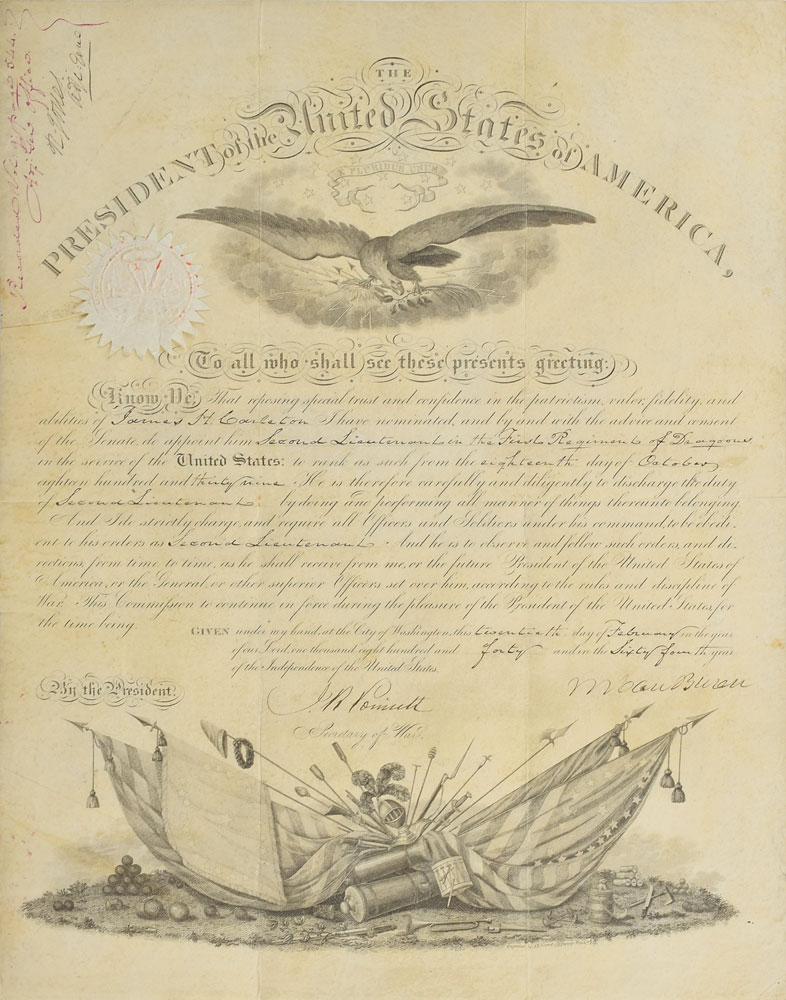 THE
PRESIDENT of the United States of AMERICA,
E PLURIBUS UNUM
To all who shall see these presents greeting:
Know Ye, That reposing special trust and confidence in the patriotism, valor, fidelity, and
abilities of James H. Carleton I have nominated, and by and with the advice and consent
of the Senate, do appoint him Second Lieutenant in the First Regiment of Dragoons
in the service of the United States: to rank as such from the eighteenth day of October
eighteen hundred and thirty nine. He is therefore carefully and diligently to discharge the duty
of Second Lieutenant by doing and performing all manner of things thereunto belonging.
And I do strictly charge, and require all Officers and Soldiers under his command, to be obedi-
ent to his orders as Second Lieutenant. And he is to observe and follow such orders, and di-
rections, from time to time, as he shall recive from me, or the future President of the United States of
America, or the General, or other superior Officers set over him, according to the rules and discipline of
War. This Commission to continue in force during the pleasure of the President of the United States, for
the time being.
GIVEN under my hand, at the City of Washington, this twentieth day of February in the year
of our Lord, one thousand eight hundred and forty and in the Sixty fourth year
of the Independence of the United States.
By the President,
M Van Buren
J. R. Poinsett
Secretary of War.
Recorded
R. Jones
Adj. Genl